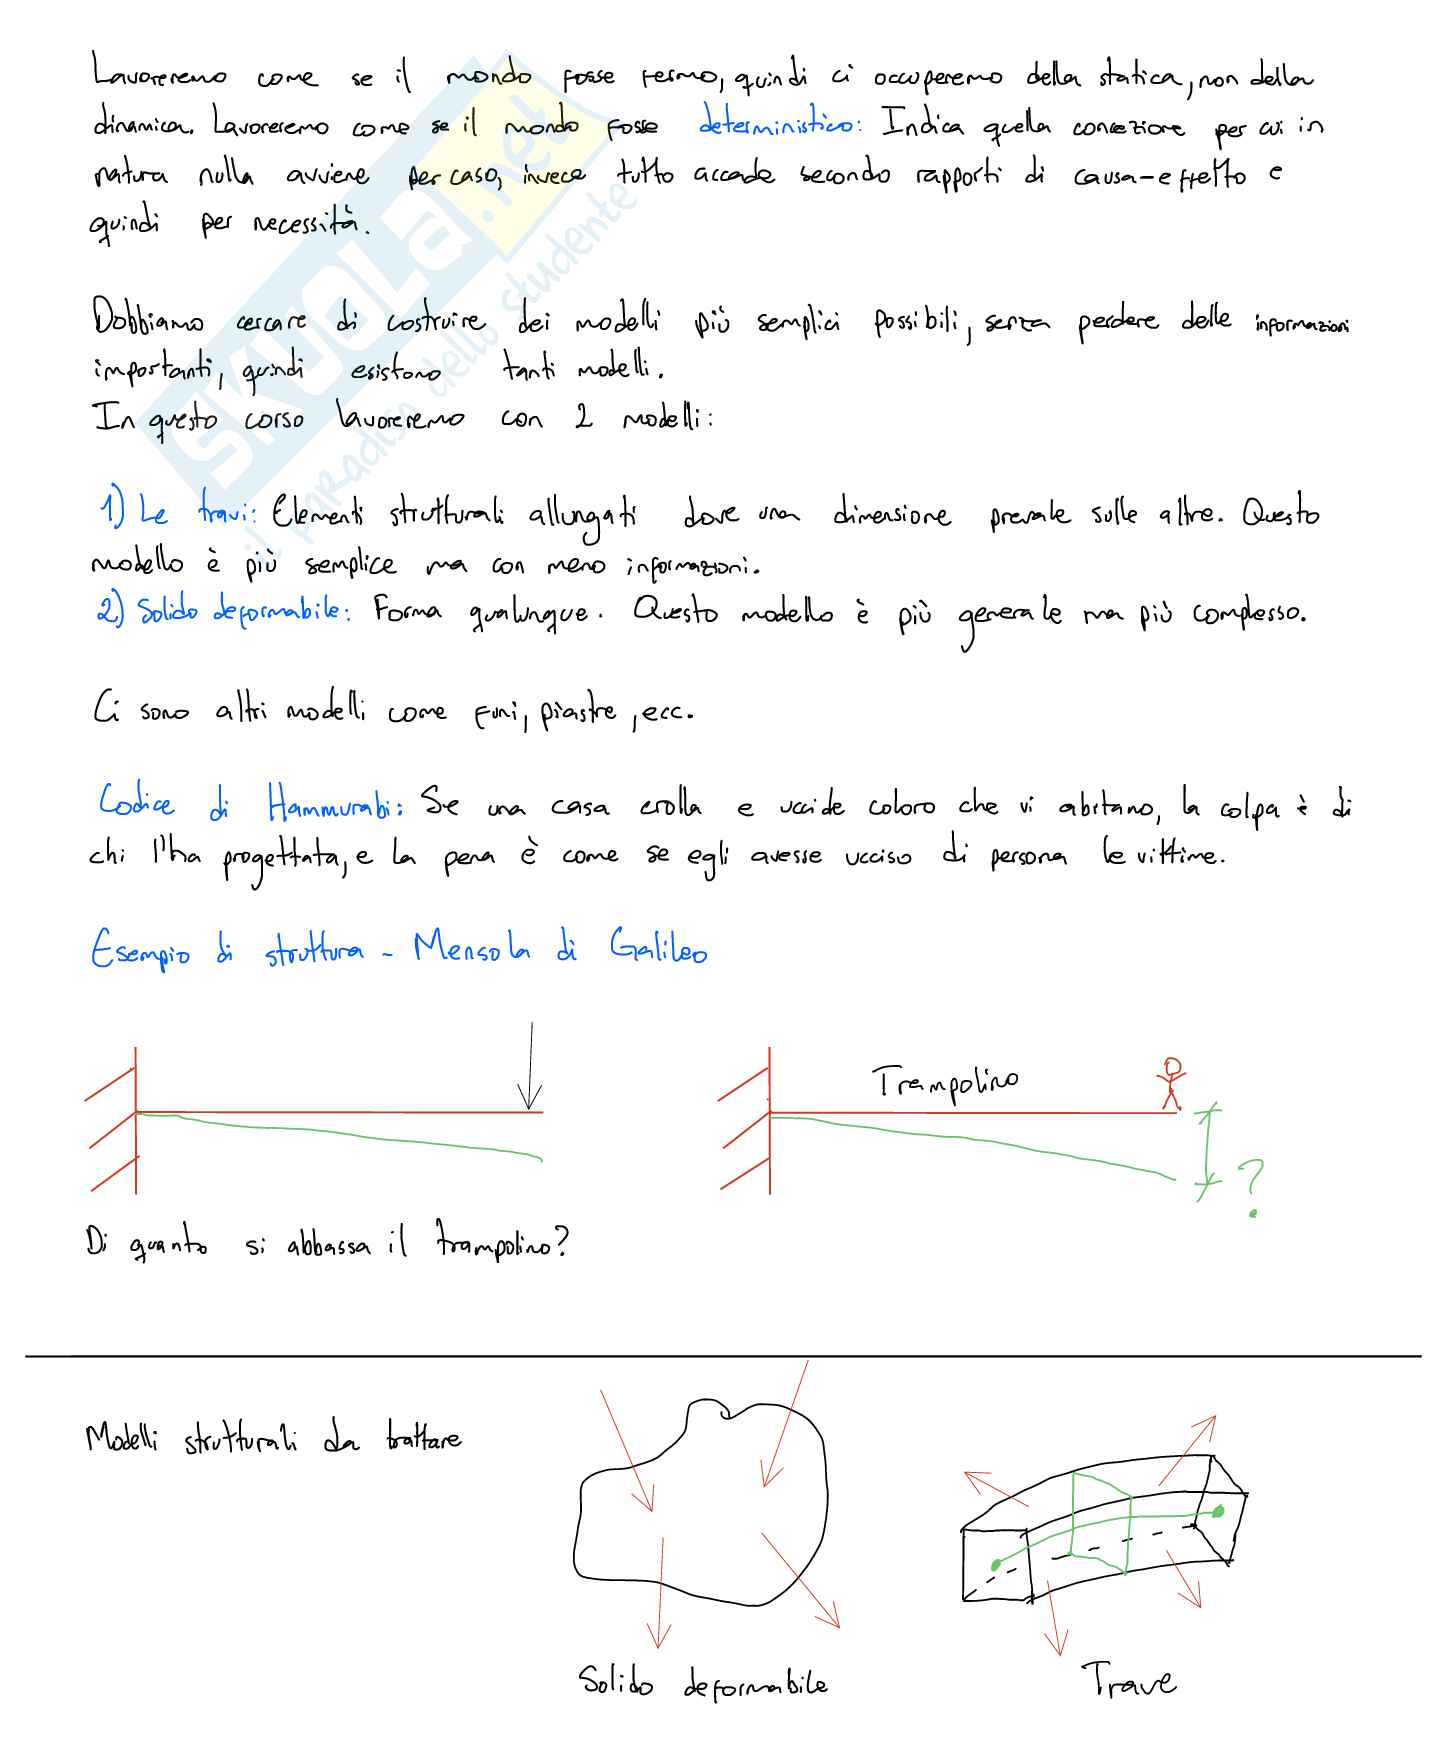 Lavoreremo come se il mondo fosse fermo, quindi ci occuperemo della statica, non della
dinamica. Lavoreremo come se il mondo fosse deterministico: Indica quella concezione per cui in
natura nulla avviene per caso, invece tutto accade secondo rapporti di causa-effetto e
quindi per necessità.
Dobbiamo cercare di costruire dei modelli più semplici possibili, senza perdere delle informazioni
importanti, quindi esistono tanti modelli.
In questo corso lavoreremo con 2 modelli:
1) Le travi: Elementi strutturali allungati dove una dimensione prevale sulle altre. Questo
modello è più semplice ma con meno informazioni.
2) Solido deformabile: Forma qualunque. Questo modello è più generale ma più complesso.
Ci sono altri modelli come funi, piastre, ecc.
Codice di Hammurabi: Se una casa crolla e uccide coloro che vi abitano, la colpa è di
chi l'ha progettata, e la pena è come se egli avesse ucciso di persona le vittime.
Esempio di struttura - Mensola di Galileo
Trampolino
?
Di quanto si abbassa il trampolino?
Modelli strutturali da trattare
Solido deformabile
Trave
SKUOLA.net
il paradiso dello studente